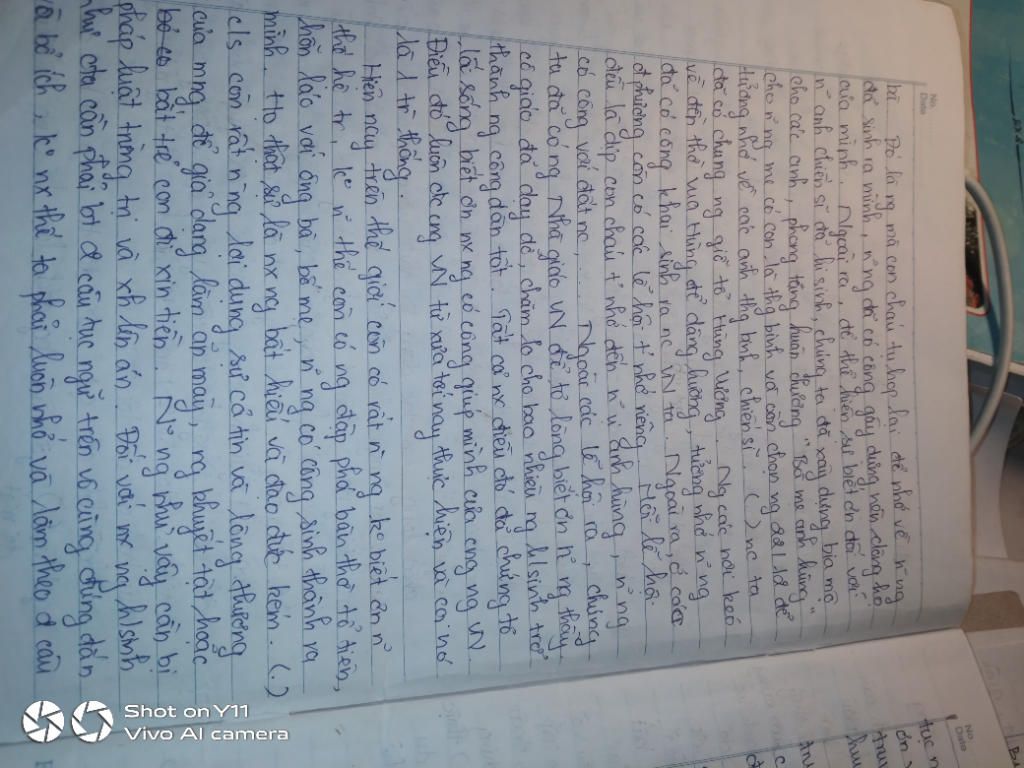 No.
Date
bì... Đó là ng mà con cháu tụ họp lại để nhớ về n~ ng
đã sinh ra mình, n~ ng đã có công gây dựng nên dòng họ
của mình. Ngoài ra, để thể hiện sự biết ơn đối với
n~ anh chiến sĩ đã hi sinh, chúng ta đã xây dựng bia mộ
cho các anh, phong tặng huân chương "Bà mẹ anh hùng"
cho n~ ng mẹ có con là thg binh và con chọn ng 22/12 để
tưởng nhớ về các anh thg binh, chiến sĩ. (.) nc ta
đã có chung ng giỗ tổ Hùng Vương. Ng các nơi kéo
về đền thờ vua Hùng để dâng hương, tưởng nhớ n~ ng
đã có công khai sinh ra nc VN ta. Ngoài ra, ở các
địa phương còn có các lễ hội t nhớ riêng. Mỗi lễ hội
đều là dịp con cháu t nhớ đến n~ vị anh hùng, n~ ng
có công với đất nc,... Ngoài các lễ hội ra, chúng
ta đã có ng Nhà giáo VN để tỏ lòng biết ơn n~ ng thầy
cô giáo đã dạy dỗ, chăm lo cho bao nhiêu ng h/sinh trở
thành ng công dân tốt. Tất cả nx điều đó đã chứng tỏ
lẽ sống biết ơn nx ng có công giúp mình của cng ng VN.
Điều đó luôn đc cng VN từ xưa tới nay thực hiện và coi nó
là 1 tr thống.
Hiện nay trên thế giới còn có rất n~ ng ko biết ơn n~
thế hệ tr, k° n~ thế còn có ng đập phá bàn thờ tổ tiên,
hỗn láo với ông bà, bố mẹ, n~ ng có công sinh thành ra
mình. Họ thật sự là nx ng bất hiếu và đạo đức kém. (.)
c/s còn rất n~ ng lợi dụng sự cả tin và lòng thương
của mng để giả dạng làm ăn mày, ng khuyết tật hoặc
bắt trẻ con đi xin tiền. N~ ng như vậy cần bị
pháp luật trừng trị và xh lên án. Đối với mx ng h/sinh
như cta cần phải bt đc câu tục ngữ trên vô cùng đúng đắn
và bổ ích, k° nx thế ta phải luôn nhớ và làm theo đc câu
Shot on Y11
Vivo AI camera